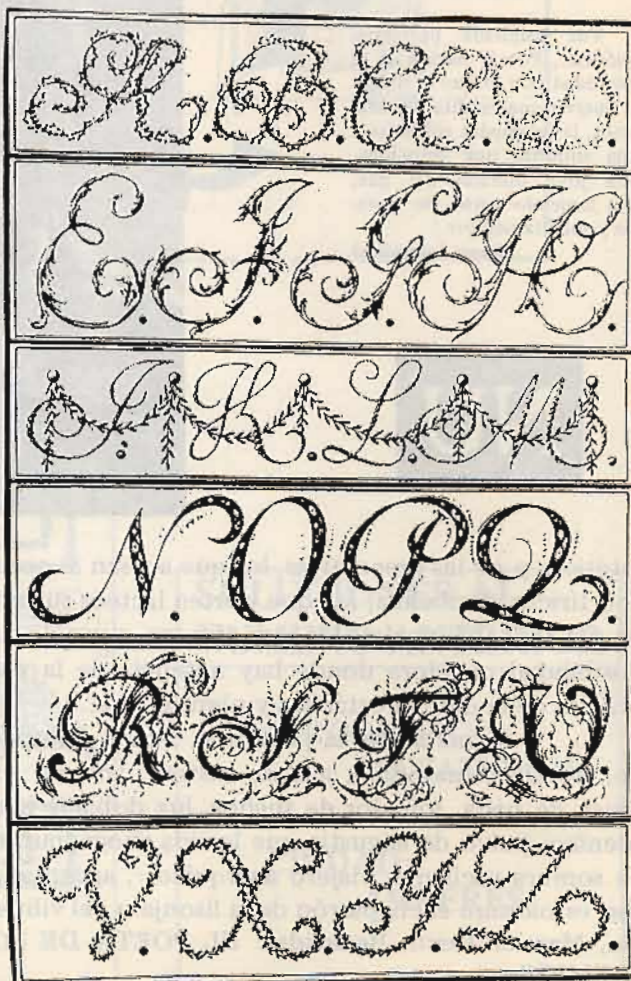 A. B. C. D.
E. F. G. H.
I. K. L. M.
N O P Q
R. S. T. U.
V. X. Y. Z.